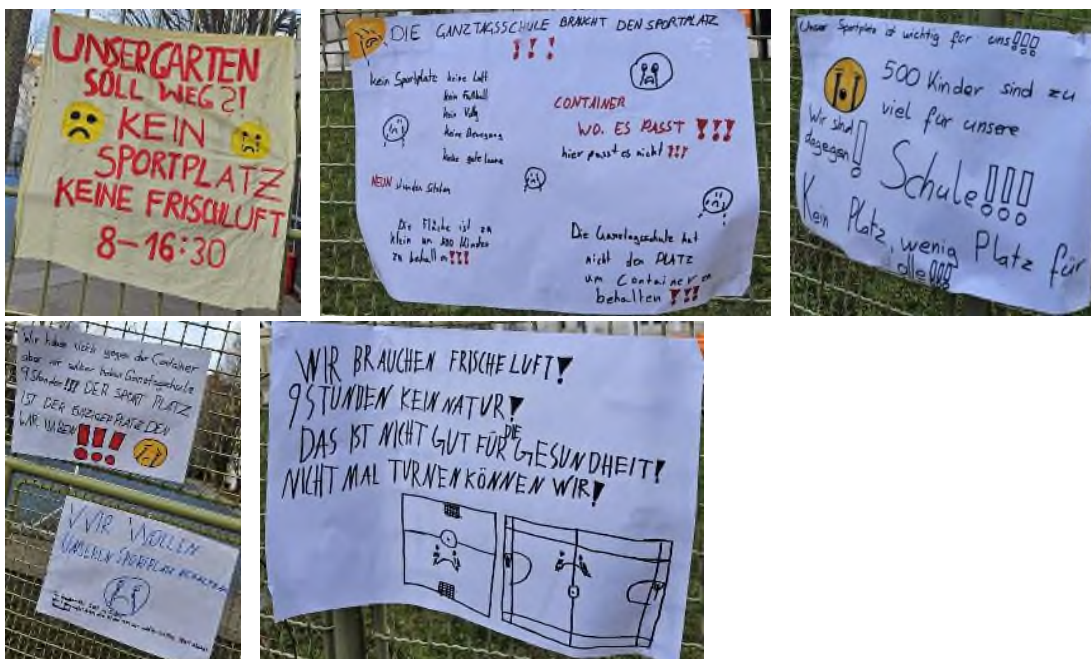 UNSERGARTEN
SOLL WEG?!
KEIN
SPORTPLATZ
KEINE FRISCHLUFT
8-16:30
DIE GANZTAGSSCHULE BRAUCHT DEN SPORTPLATZ
!!!
kein Sportplatz keine Luft
kein Fußball
kein Volley
keine Bewegung
keine gute laune
NEUN stunden Schule
Die Fläche ist zu
klein um 500 Kinder
zu behalten!!!
CONTAINER
WO. ES PASST !!!
hier passt es nicht !!!
Die Ganztagsschule hat
nicht den PLATZ
um Container zu
behalten !!!
Unser Sportplatz ist wichtig für uns!!!
500 Kinder sind zu
viel für unsere
Schule!!!
Wir sind
dagegen!
Kein Platz, wenig Platz für
alle!!!
Wir haben nichts gegen die Container
aber wir haben Ganztagsschule
9 Stunden!!! DER SPORT PLATZ
IST DER EINZIGE PLATZ DEN
WIR HABEN !!!
WIR WOLLEN
UNSEREN SPORTPLATZ BEHALTEN
WIR BRAUCHEN FRISCHE LUFT!
9 STUNDEN KEIN NATUR!
DAS IST NICHT GUT FÜR DIE GESUNDHEIT!
NICHT MAL TURNEN KÖNNEN WIR!